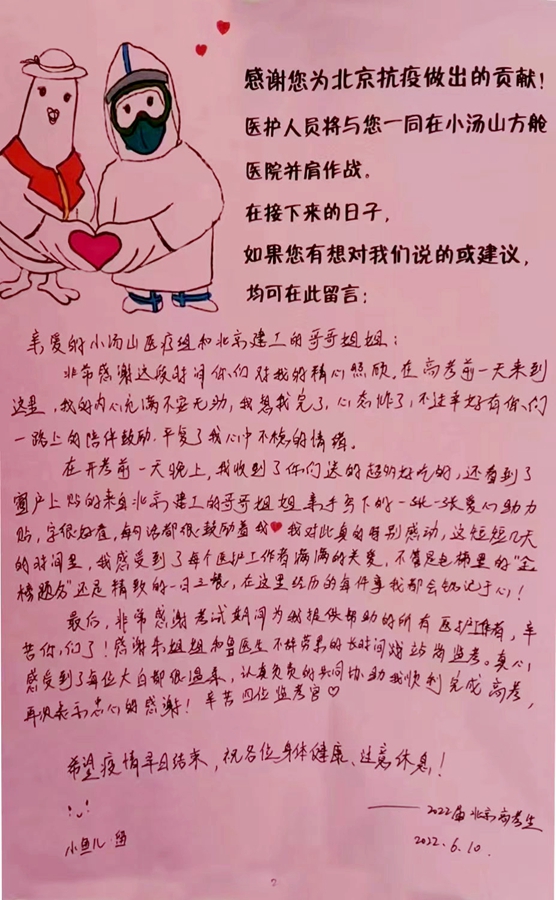 感谢您为北京抗疫做出的贡献!
医护人员将与您一同在小汤山方舱
医院并肩作战。
在接下来的日子,
如果您有想对我们说的或建议,
均可在此留言:
亲爱的小汤山医疗组和北京建工的哥哥姐姐:
非常感谢这段时间你们对我的精心照顾。在高考前一天来到
这里,我的内心充满不安无助,我想我完了,心态炸了,不过幸好有你们
一路上的陪伴鼓励,平复了我心中不稳的情绪。
在开考前一天晚上,我收到了你们送的超多好吃的,还看到了
窗户上贴的来自北京建工的哥哥姐姐亲手写下的一张一张爱心助力
贴,字很好看,每句话都很鼓励着我❤我对此真的特别感动,这短短几天
的时间里,我感受到了每个医护工作者满满的关爱,不管是包裹里的“金
榜题名”还是精致的一日三餐,在这里经历的每件事我都会铭记于心!
最后,非常感谢考试期间为我提供帮助的所有医护工作者,辛
苦你们了!感谢朱姐姐和鲁医生不辞劳累的长时间站岗监考。真心
感受到了每位大白都很温柔,认真负责的共同协助我顺利完成高考,
再次表示衷心的感谢!辛苦四位监考官♡
希望疫情早日结束,祝各位身体健康、注意休息!
——2022届北京高考生
小鱼儿
2022.6.10.